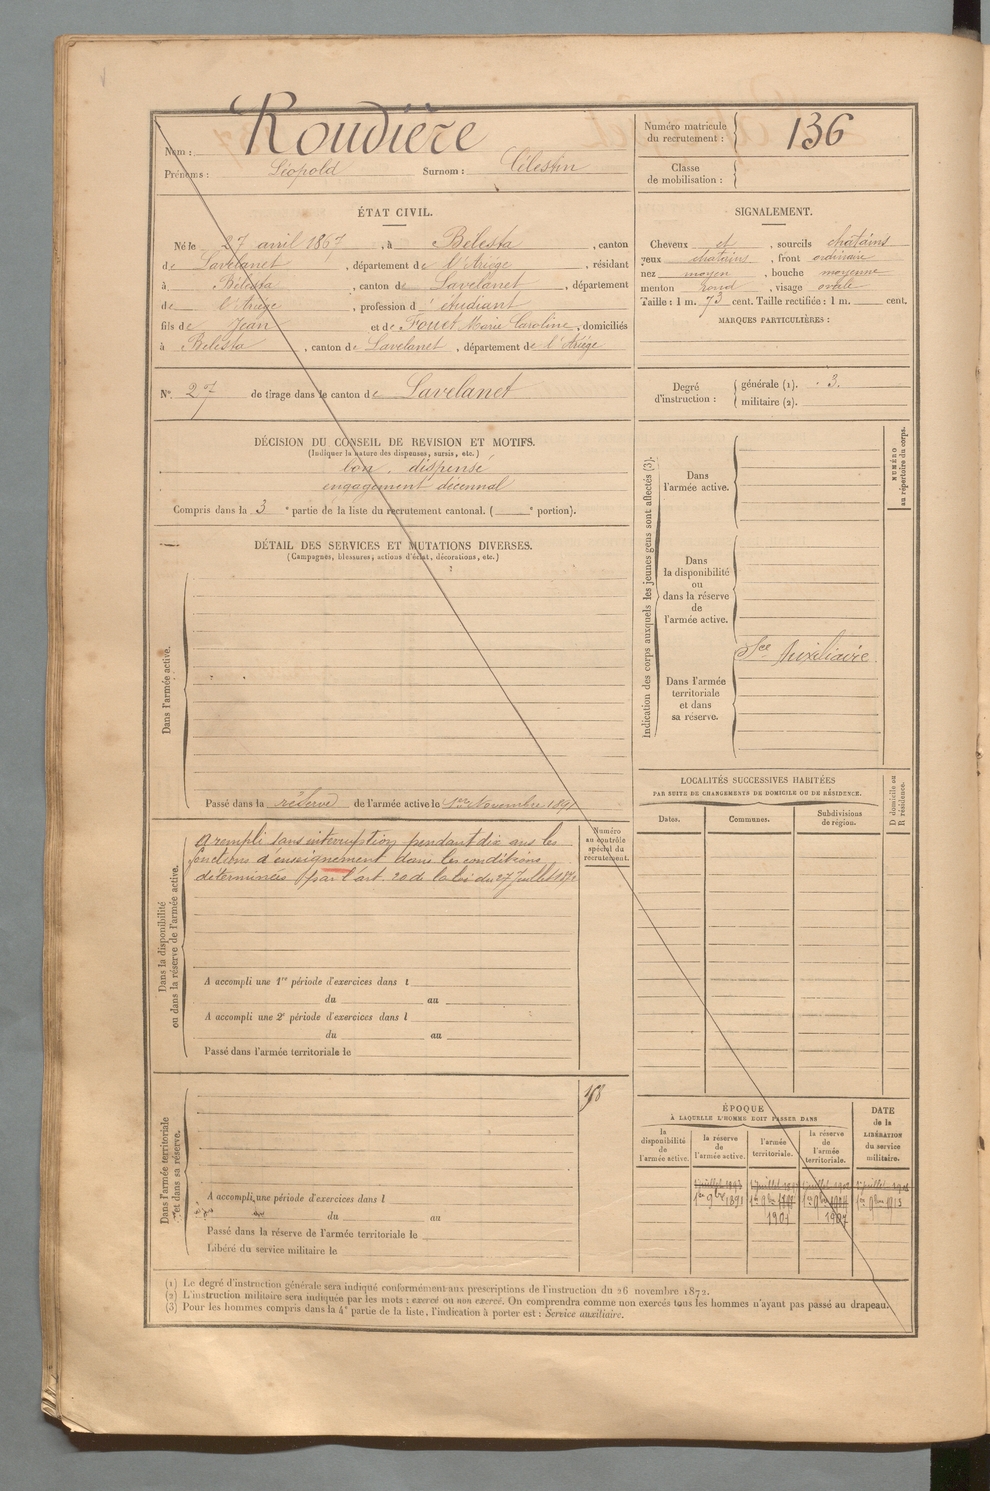 Nom : Roudière
Prénoms : Léopold Surnom : Célestin
Numéro matricule du recrutement : 136
Classe de mobilisation :
ÉTAT CIVIL.
Né le 27 avril 1867, à Belesta, canton
de Lavelanet, département de l'Ariège, résidant
à Bélesta, canton de Lavelanet, département
de l'Ariège, profession d'étudiant
fils de Jean et de Fouet Marie Caroline, domiciliés
à Belesta, canton de Lavelanet, département de l'Ariège
SIGNALEMENT.
Cheveux et, sourcils chatains
yeux chatains, front ordinaire
nez moyen, bouche moyenne
menton rond, visage ovale
Taille : 1 m. 73 cent. Taille rectifiée : 1 m. cent.
MARQUES PARTICULIÈRES :
N° 27 de tirage dans le canton de Lavelanet
Degré d'instruction : générale (1). 3.
militaire (2).
DÉCISION DU CONSEIL DE REVISION ET MOTIFS.
(Indiquer la nature des dispenses, sursis, etc.)
bon, dispensé
engagement décennal
Compris dans la 3e partie de la liste du recrutement cantonal. ( e portion).
DÉTAIL DES SERVICES ET MUTATIONS DIVERSES.
(Campagnes, blessures, actions d'éclat, décorations, etc.)
Dans l'armée active.
Passé dans la réserve de l'armée active le 1er Novembre 1891
Dans la disponibilité ou dans la réserve de l'armée active.
A rempli sans interruption pendant dix ans les
fonctions d'enseignement dans les conditions
déterminées par l'art. 20 de la loi du 27 Juillet 1872
Numéro au contrôle spécial du recrutement.
A accompli une 1re période d'exercices dans l
du au
A accompli une 2e période d'exercices dans l
du au
Passé dans l'armée territoriale le
Dans l'armée territoriale et dans sa réserve.
A accompli une période d'exercices dans l
du au
Passé dans la réserve de l'armée territoriale le
Libéré du service militaire le
Indication des corps auxquels les jeunes gens sont affectés (3).
NUMÉRO au répertoire du corps.
Dans l'armée active.
Dans la disponibilité ou dans la réserve de l'armée active.
Sce Auxiliaire
Dans l'armée territoriale et dans sa réserve.
LOCALITÉS SUCCESSIVES HABITÉES
PAR SUITE DE CHANGEMENTS DE DOMICILE OU DE RÉSIDENCE.
Dates. Communes. Subdivisions de région. D domicile ou R résidence.
ÉPOQUE
À LAQUELLE L'HOMME DOIT PASSER DANS
la disponibilité de l'armée active. la réserve de l'armée active. l'armée territoriale. la réserve de l'armée territoriale.
DATE de la LIBÉRATION du service militaire.
1er 9bre 1891
1901 1907
1er 9bre 1913
(1) Le degré d'instruction générale sera indiqué conformément aux prescriptions de l'instruction du 26 novembre 1872.
(2) L'instruction militaire sera indiquée par les mots : exercé ou non exercé. On comprendra comme non exercés tous les hommes n'ayant pas passé au drapeau.
(3) Pour les hommes compris dans la 4e partie de la liste, l'indication à porter est : Service auxiliaire.